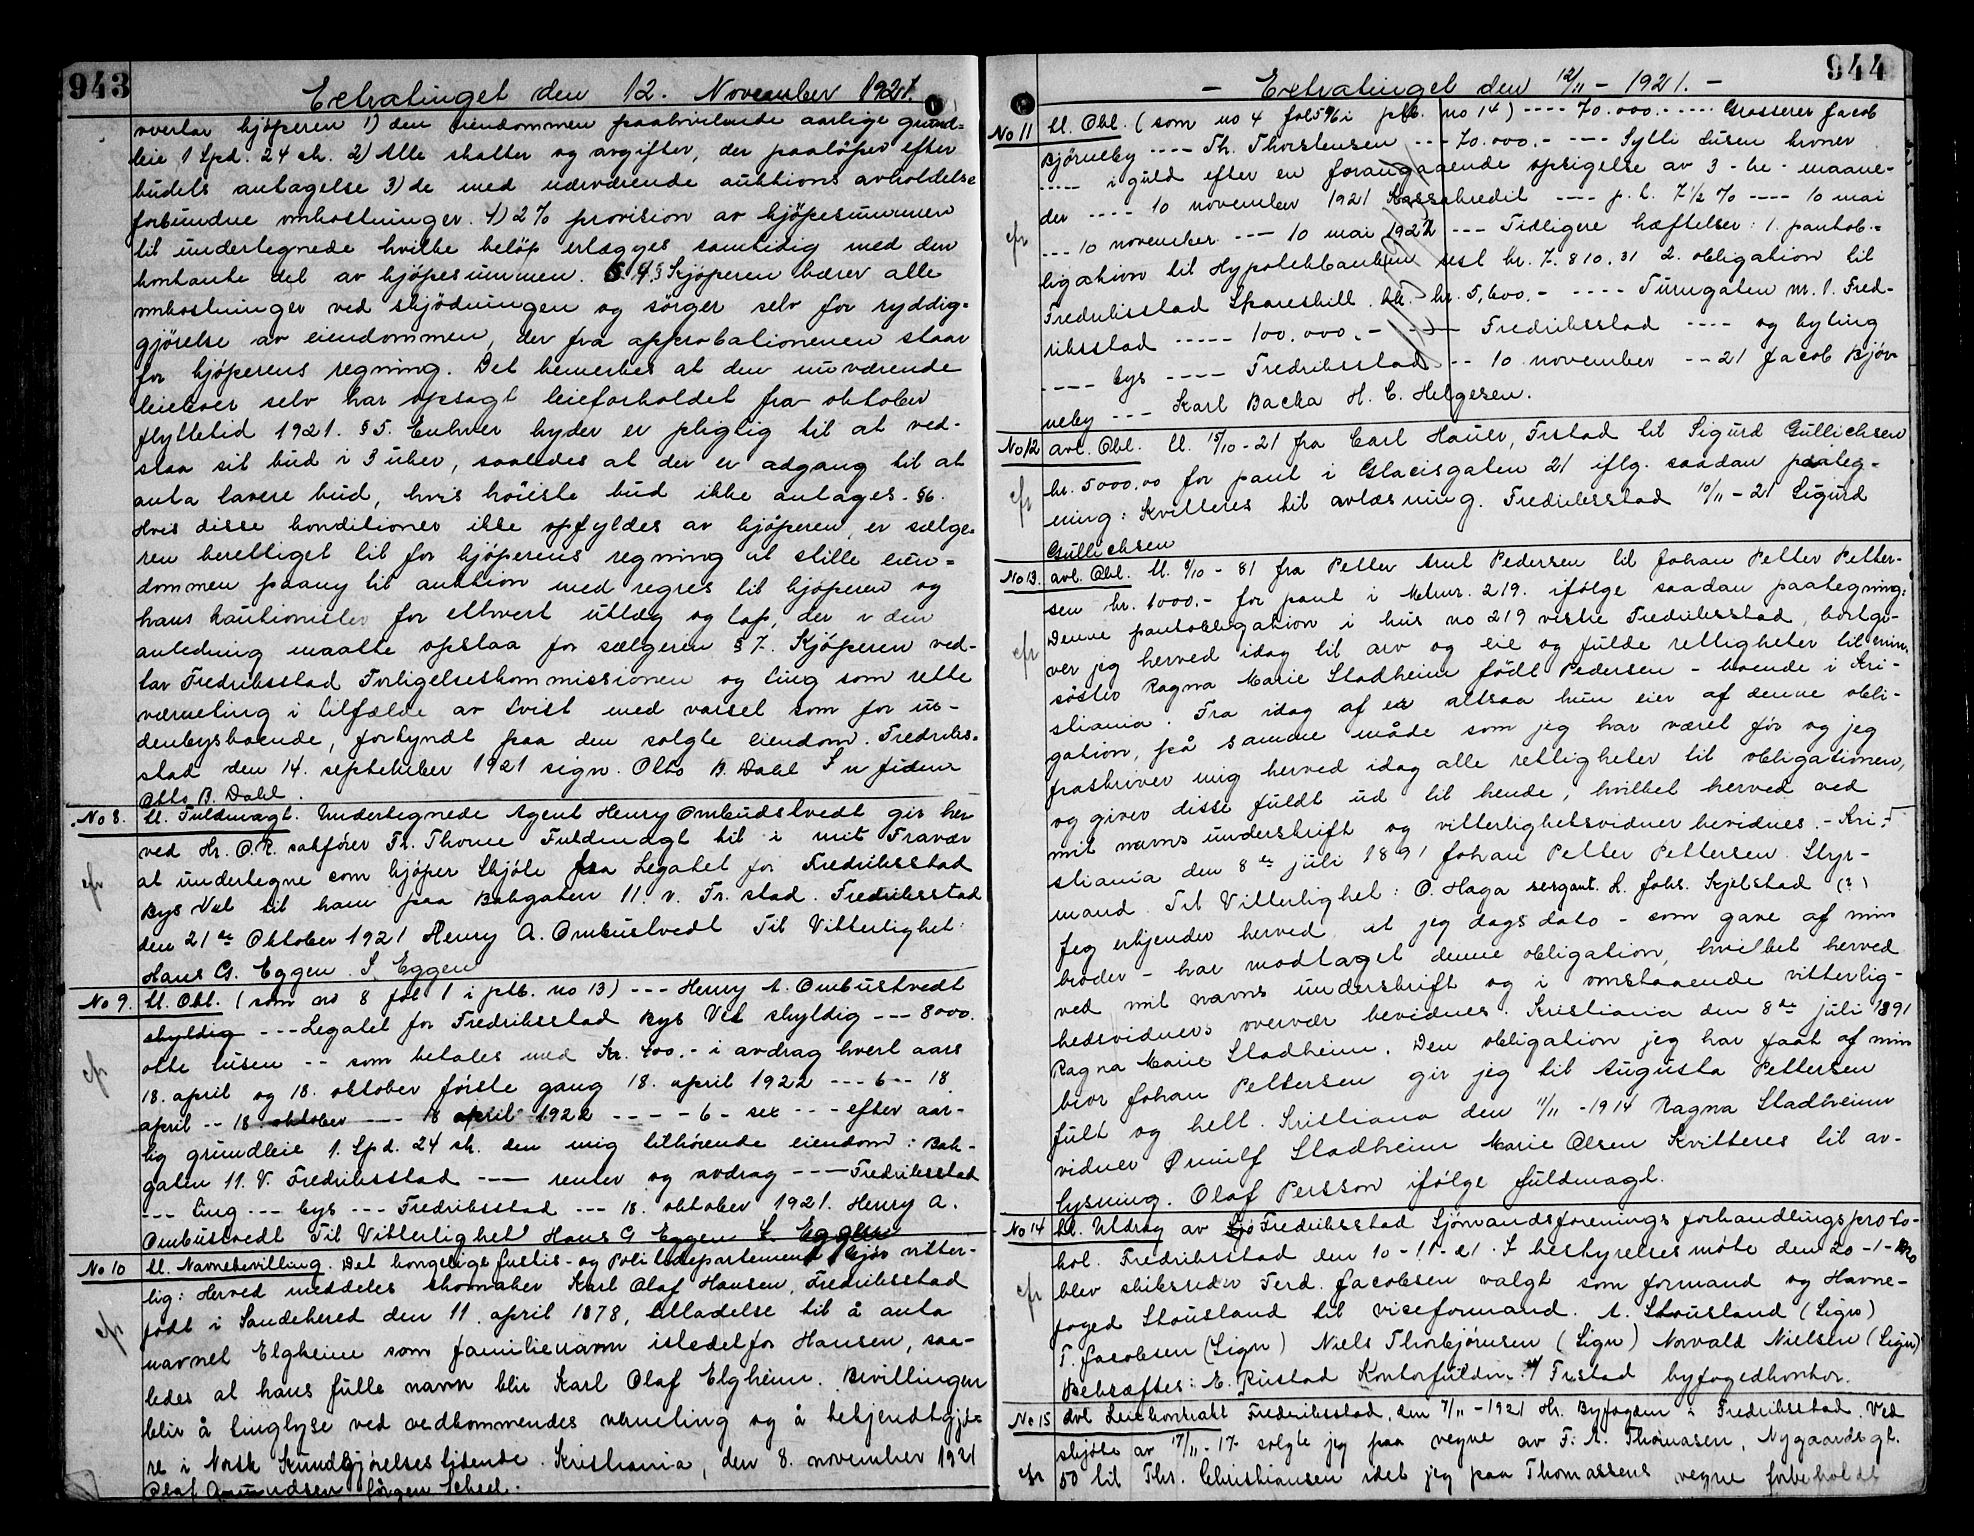 943
Extratinget den 12. November 1921.
overtar kjøperen 1) den eiendommen paahvilende aarlige grund=
leie 1 Spd. 24 sk. 2) Alle skatter og avgifter, der paaløper efter
budets antagelse 3) de med nærværende auktions avholdelse
forbundne omkostninger. 4) 2% provision av kjøpesummen
til undertegnede hvilke beløp erlægges samtidig med den
kontante del av kjøpesummen. § 4. Kjøperen bærer alle
omkostninger ved skjødningen og sørger selv for ryddig=
gjørelse av eiendommen, der fra approbationenen staar
for kjøperens regning. Det bemerkes at den nuværende
leieboer selv har opsagt leieforholdet fra oktober
flyttetid 1921. § 5. Enhver byder er pligtig til at ved-
staa sit bud i 3 uker, saaledes at der er adgang til at
anta lavere bud, hvis høieste bud ikke antages. § 6.
Hvis disse konditioner ikke opfyldes av kjøperen, er sælge-
ren berettiget til for kjøperens regning at stille eien=
dommen paany til auktion med regres til kjøperen og
hans kautionister for ethvert utlæg og tap, der i den
anledning maatte opstaa for sælgeren § 7. Kjøperen ved-
tar Fredriksstad Forligelseskommissionen og ting som rette
værneting i tilfælde av tvist med varsel som for in-
denbysboende, forkyndt paa den solgte eiendom. Fredriks-
stad den 14. september 1921 sign. Otto B. Dahl In fidem
Otto B. Dahl.
No 8. tl. Fuldmagt. Undertegnede Agent Henry Ombudstvedt gir her
ved Hr. O.R. sakfører Fr. Thorne Fuldmagt til i mit Fravær
at undertegne som kjøper Skjøte fra Legatet for Fredriksstad
Bys Vel til ham paa Bakgaten 11. v. Fr. stad. Fredriksstad
den 21de Oktober 1921 Henry A. Ombustvedt Til Vitterlighet:
Hans G. Eggen. S. Eggen
No 9. tl. Obl. (som no 8 fol 1 i ptb. no 13) --- Henry A. Ombustvedt
skyldig --- Legatet for Fredriksstad Bys Vel skyldig --- 8000.
otte tusen -- som betales med Kr. 400.- i avdrag hvert aars
18. april og 18. oktober første gang 18. april 1922 --- 6 -- 18
april -- 18 oktober --- 18 april 1922 ---- 6 - sex --- efter aar-
lig grundleie 1. Spd. 24 sk. den mig tilhørende eiendom: Bak-
gaten 11. V. Fredriksstad --- renter og avdrag --- Fredriksstad
--- ting --- bys --- Fredriksstad --- 18. oktober 1921. Henry A.
Ombustvedt Til Vitterlighet Hans G Eggen S. Eggen
No 10 tl. Navnebevilling. Det kongelige Justis- og Politidepartement gjør vitter-
lig: Herved meddeles skomaker Karl Olaf Hansen, Fredriksstad
født i Sandehered den 11. april 1878, tilladelse til å anta
navnet Elgheim som familienavn istedetfor Hansen, saa-
ledes at hans fulle navn blir Karl Olaf Elgheim. Bevillingen
blir å tinglyse ved vedkommendes værneting og å bekjendtgjø=
re i Norsk Kundgjørelsestidende. Kristiania, den 8. november 1921
Olaf Amundsen Jørgen Scheel.
944
- Extratinget den 12/11 - 1921. -
No 11 tl. Obl. (som no 4 fol 596 i ptb. no 14) ---- 70.000.- ---- Grosserer Jacob
Bjørneby ---- Th. Thorstensen --- 70.000.- --- Sytti tusen kroner
---- i guld efter en forangaaende opsigelse av 3 - tre - maane-
der ---- 10 november 1921 Kassakredit ---- p.t. 7½ % ---- 10 mai
--- 10 november --- 10 mai 1922 --- Tidligere hæftelser: 1. pantob-
ligation til Hypotekbanken rest kr. 7.810.31 2. obligation til
Fredriksstad Spareskill. bk. kr. 5,600.- ---- Turngaten nr. 1. Fred-
riksstad ----- 100.000.- --- Fredriksstad ---- og byting
---- bys ---- Fredriksstad -- 10 november -- 21 Jacob Bjør-
neby --- Karl Backa H. C. Helgesen.
No 12 avl. Obl. tl. 15/10 - 21 fra Carl Hauer, Frstad til Sigurd Gullichsen
kr. 5000.00 for pant i Glacisgaten 21 iflg. saadan paateg-
ning: Kvitteres til avlæsning. Fredriksstad 10/11 - 21 Sigurd
Gullichsen
No 13. avl. Obl. tl. 6/10 - 81 fra Petter Amt Pedersen til Johan Petter Petter-
sen kr. 1000.- for pant i Matnr. 219. ifølge saadan paategning:
Denne pantobligation i hus no 219 vestre Fredriksstad, bortgi-
ver jeg herved idag til arv og eie og fulde rettigheter til min
søster Ragna Marie Stadheim født Pedersen - boende i Kri-
stiania. Fra idag af er altsaa hun eier af denne obli-
gation, på samme måde som jeg har været før og jeg
fraskriver mig herved idag alle rettigheter til obligationen,
og giver disse fuldt ud til hende, hvilket herved ved
mit navns underskrift og vitterlighetsvidner bevidnes. - Kri-
stiania den 8de juli 1891 Johan Petter Pettersen. Styr-
mand. Til Vitterlighet: O. Haga sergant. L. Johs. Kjelstad (?)
Jeg erkjender herved, at jeg dags dato - som gave af min
broder - har modtaget denne obligation, hvilket herved
ved mit navns underskrift og i omstaaende vitterlig-
hedsvidners overvær bevidnes. Kristiania den 8de juli 1891
Ragna Marie Stadheim. Den obligation jeg har faat af min
bror Johan Pettersen gir jeg til Augusta Pettersen
fult og helt. Kristiana den 11/11 - 1914 Ragna Stadheim
vidner Ørnulf Stadheim Marie Olsen Kvitteres til av-
lysning. Olaf Persson ifølge fuldmagt.
No 14 tl. Utdrag av Fredriksstad Sjømandsforenings forhandlingsproto-
kol. Fredriksstad den 10 - 11 - 21. I bestyrelsesmøte den 20 - 1 - 1920
blev skibsreder Ferd. Jacobsen valgt som formand og Havne-
foged Stousland til viceformand. A. Stousland (Sign)
F. Jacobsen (Sign) Niels Thorbjørnsen (Sign) Norvald Nielsen (Sign)
Bekræftes: E. Rustad Kontorfuldm. v/ Frstad byfogedkontor.
No 15 avl Leiekontrakt Fredriksstad, den 7/11 - 1921 Hr. Byfogden i Fredriksstad. Ved
skjøte av 17/11 - 17. solgte jeg paa vegne av F. A. Thomasen, Nygaardsgt.
50 til Thr. Christiansen idet jeg paa Thomassens vegne forbeholdt